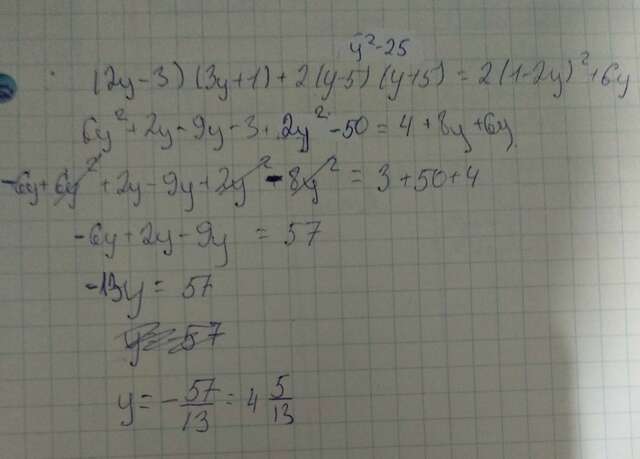 y²-25
(2y-3)(3y+1)+2(y-5)(y+5)=2(1-2y)²+6y
6y²+2y-9y-3+2y²-50=4+8y+6y
-6y+6y²+2y-9y+2y²-8y²=3+50+4
-6y+2y-9y=57
-13y=57
y=57
y=-57/13=4 5/13